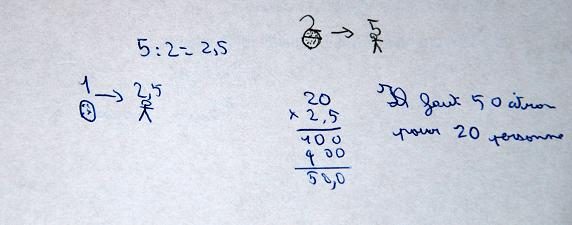 2 → 5
5:2= 2,5
1 → 2,5
20
× 2,5
100
400
50,0
Il faut 50 citron
pour 20 personne